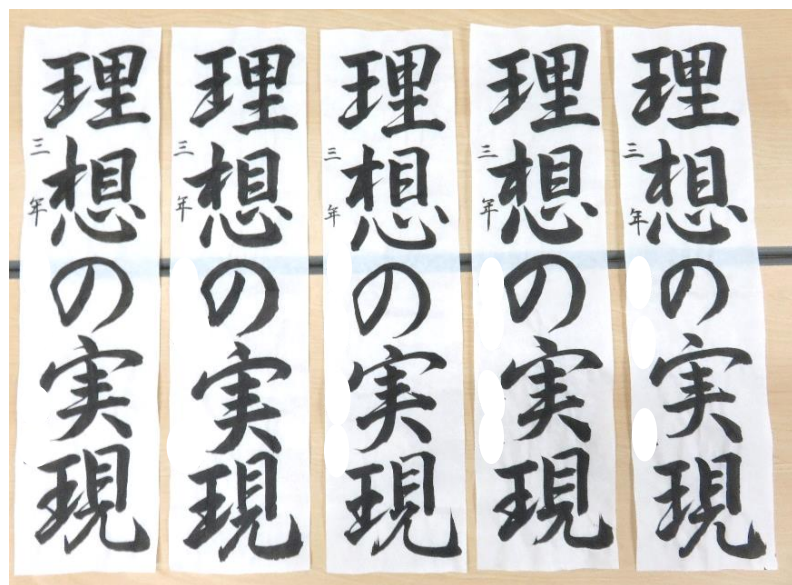 理想の実現
三年
理想の実現
三年
理想の実現
三年
理想の実現
三年
理想の実現
三年